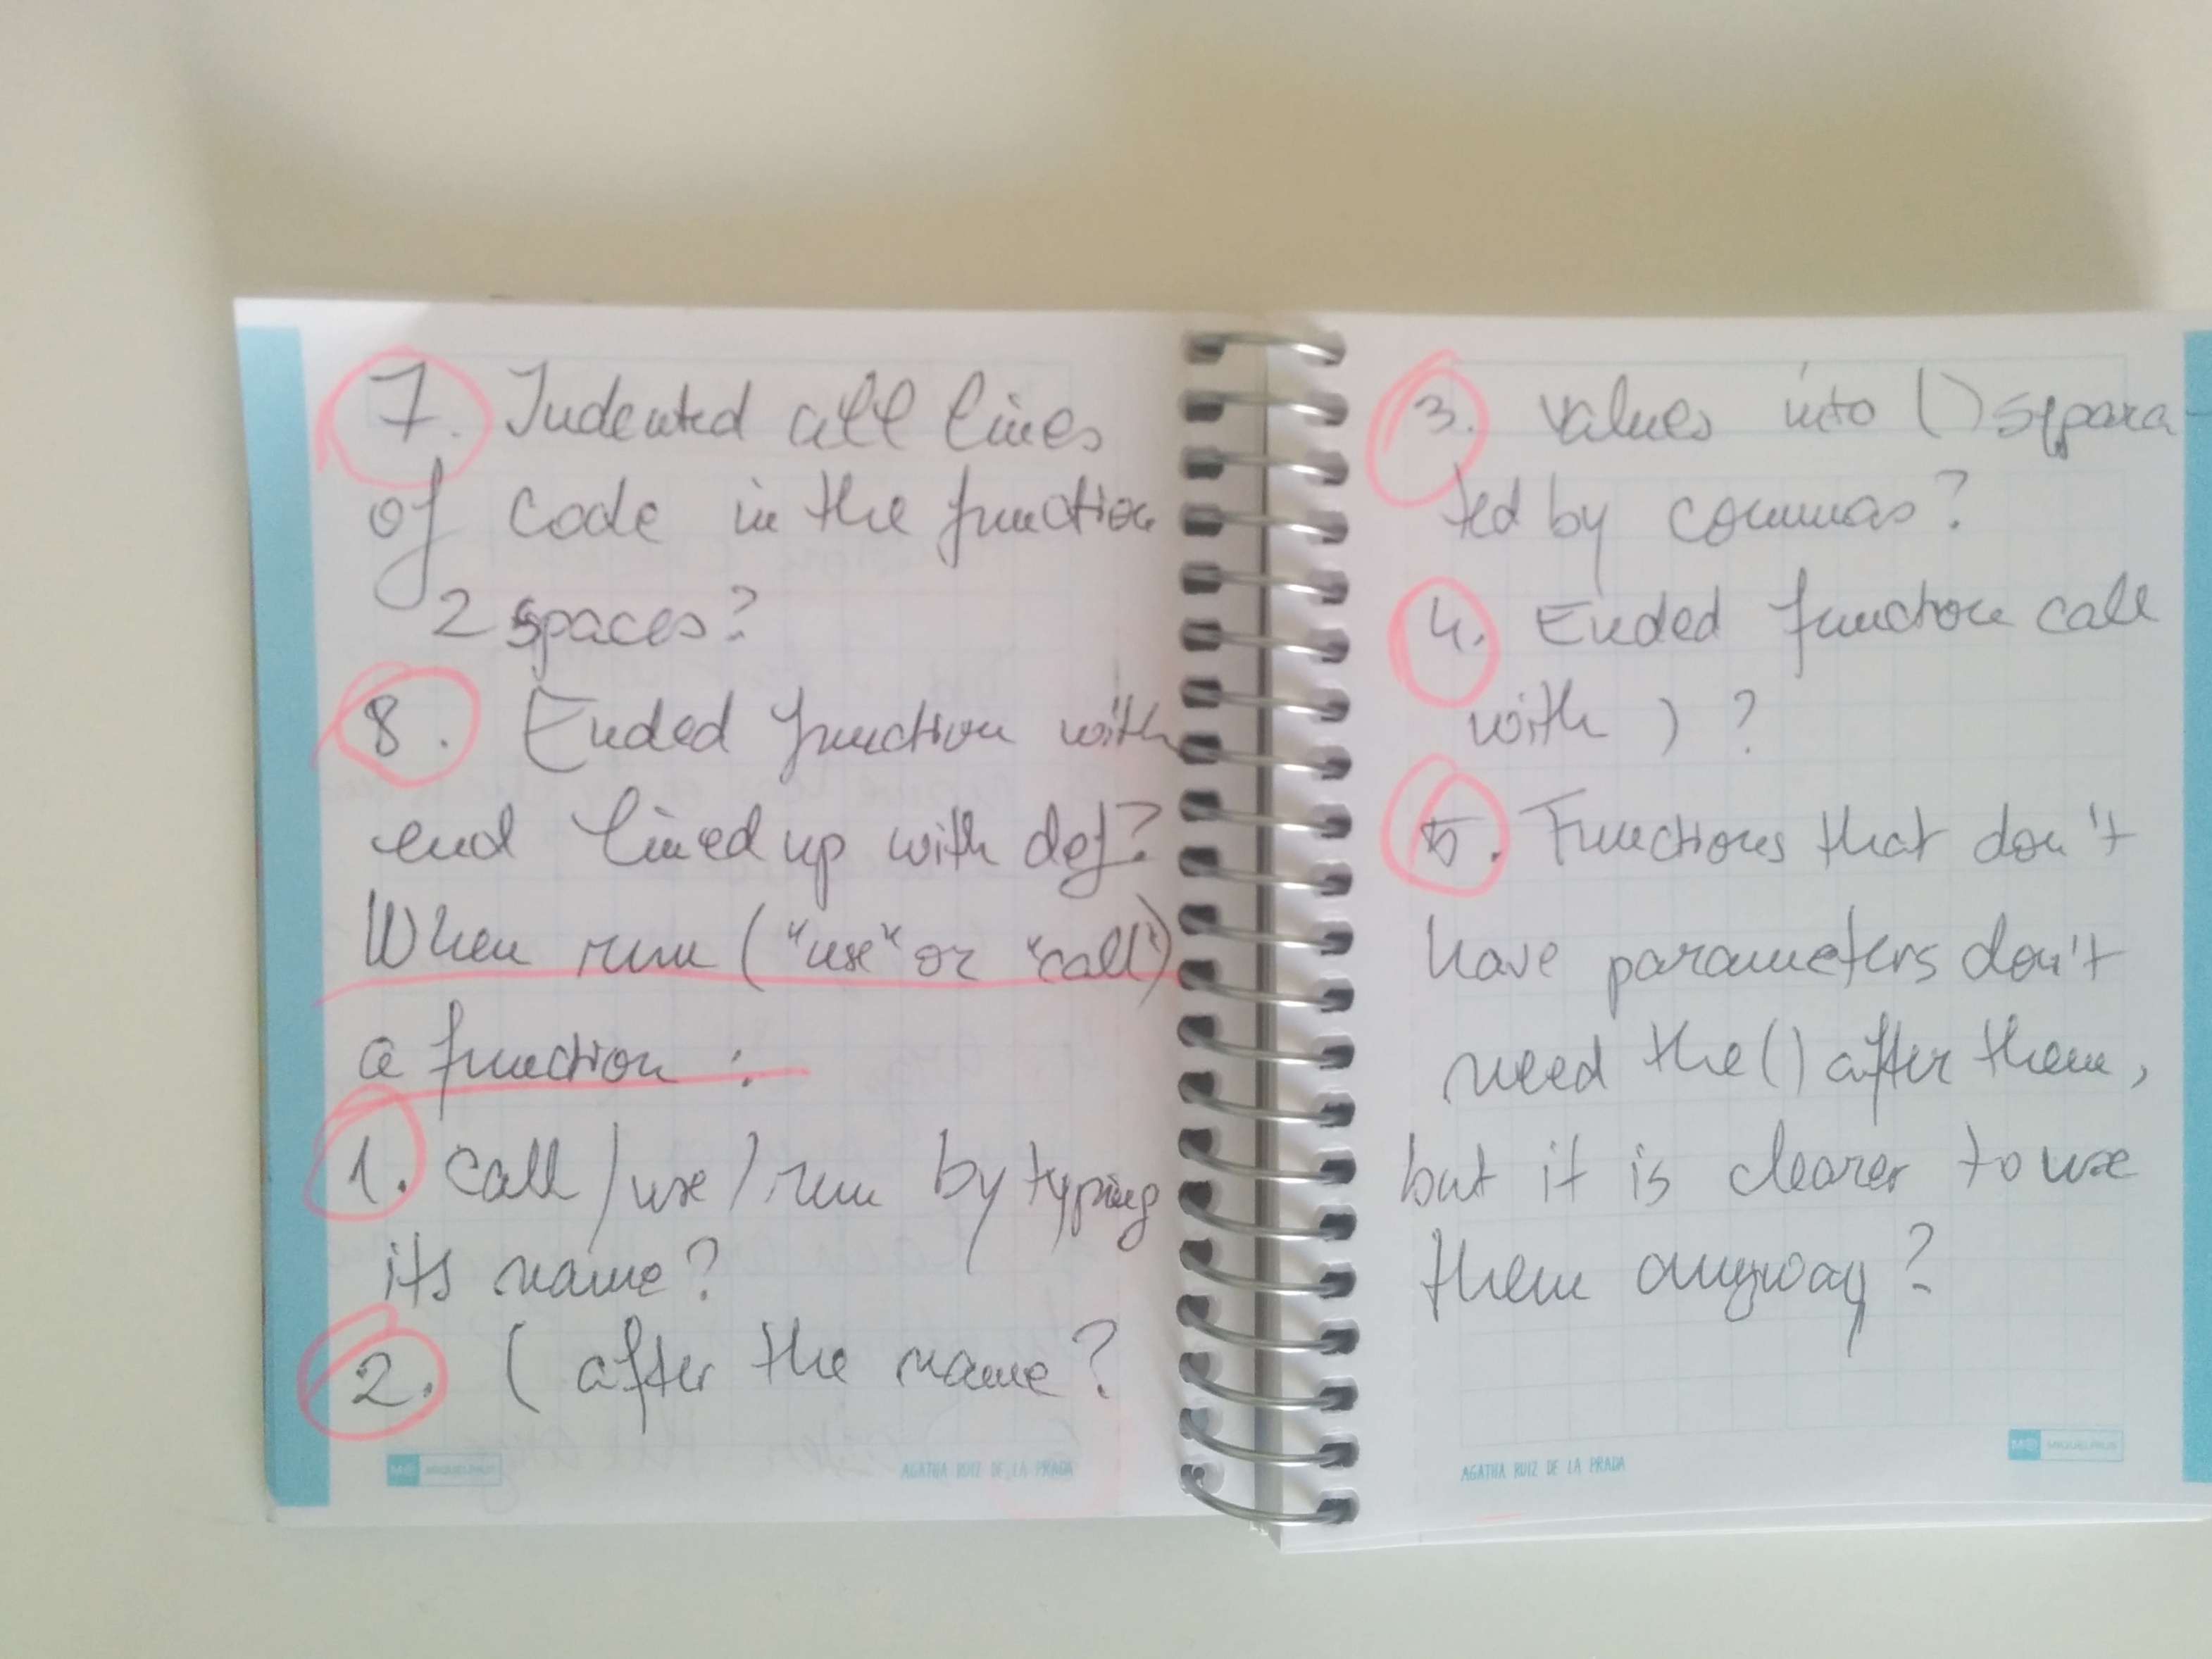 7. Indented all lines
of code in the function
2 spaces?
8. Ended function with
end lined up with def?
When run ("use" or "call")
a function:
1. call/use/run by typing
its name?
2. ( after the name?
AGATHA RUIZ DE LA PRADA
3. values into () separa-
ted by commas?
4. Ended function call
with ) ?
5. Functions that don't
have parameters don't
need the () after them,
but it is clearer to use
them anyway?
AGATHA RUIZ DE LA PRADA
MIQUELRIUS